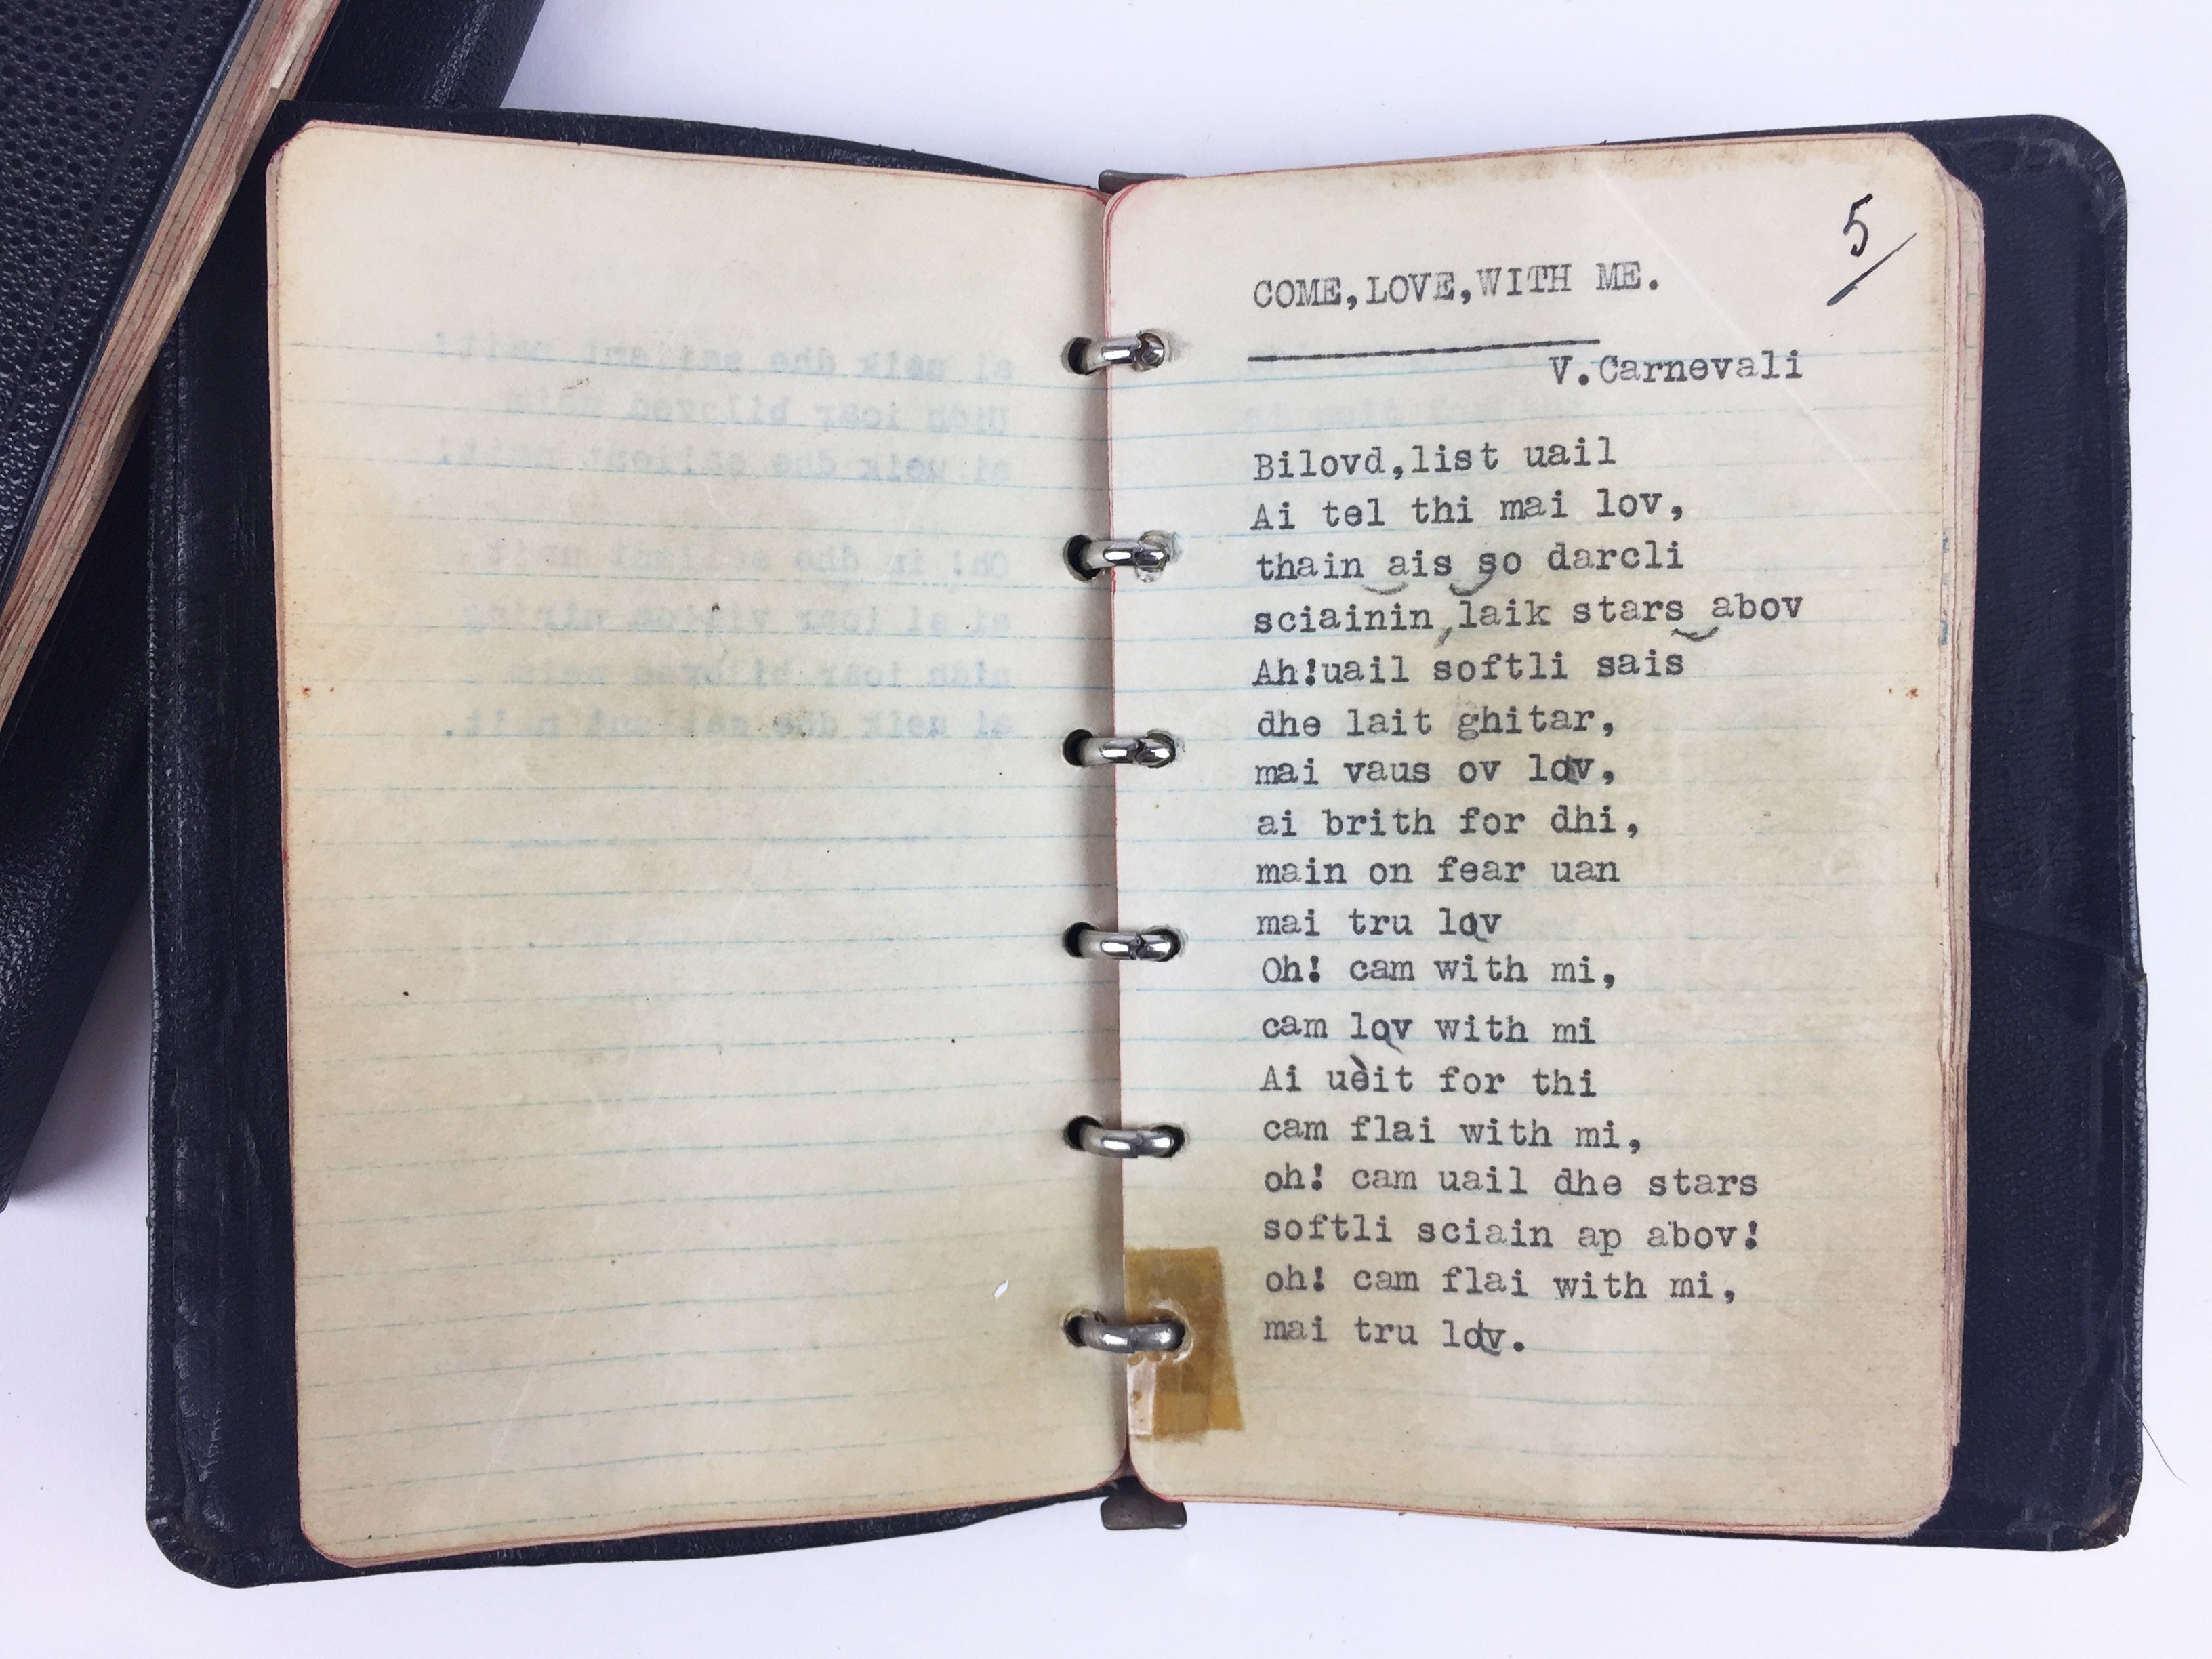 5
COME,LOVE,WITH ME.
V.Carnevali
Bilovd,list uail
Ai tel thi mai lov,
thain ais so darcli
sciainin,laik stars abov
Ah!uail softli sais
dhe lait ghitar,
mai vaus ov lov,
ai brith for dhi,
main on fear uan
mai tru lov
Oh! cam with mi,
cam lov with mi
Ai uèit for thi
cam flai with mi,
oh! cam uail dhe stars
softli sciain ap abov!
oh! cam flai with mi,
mai tru lov.